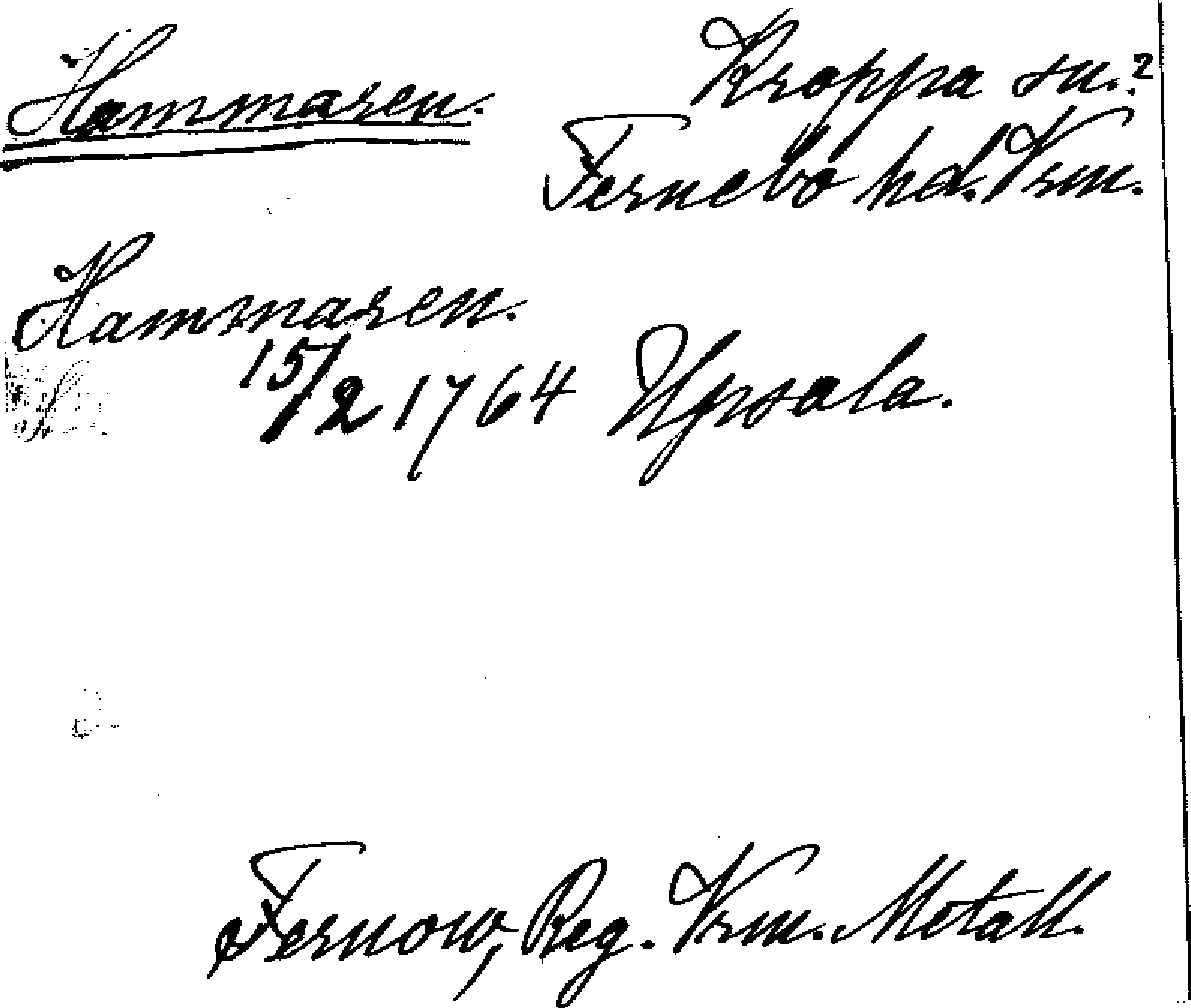 Hammaren.
Kroppa sn.?
Fernebo hd. Vrm.
Hammaren.
15/2 1764 Upsala.
Fernow, Reg. Vrm. Metall.